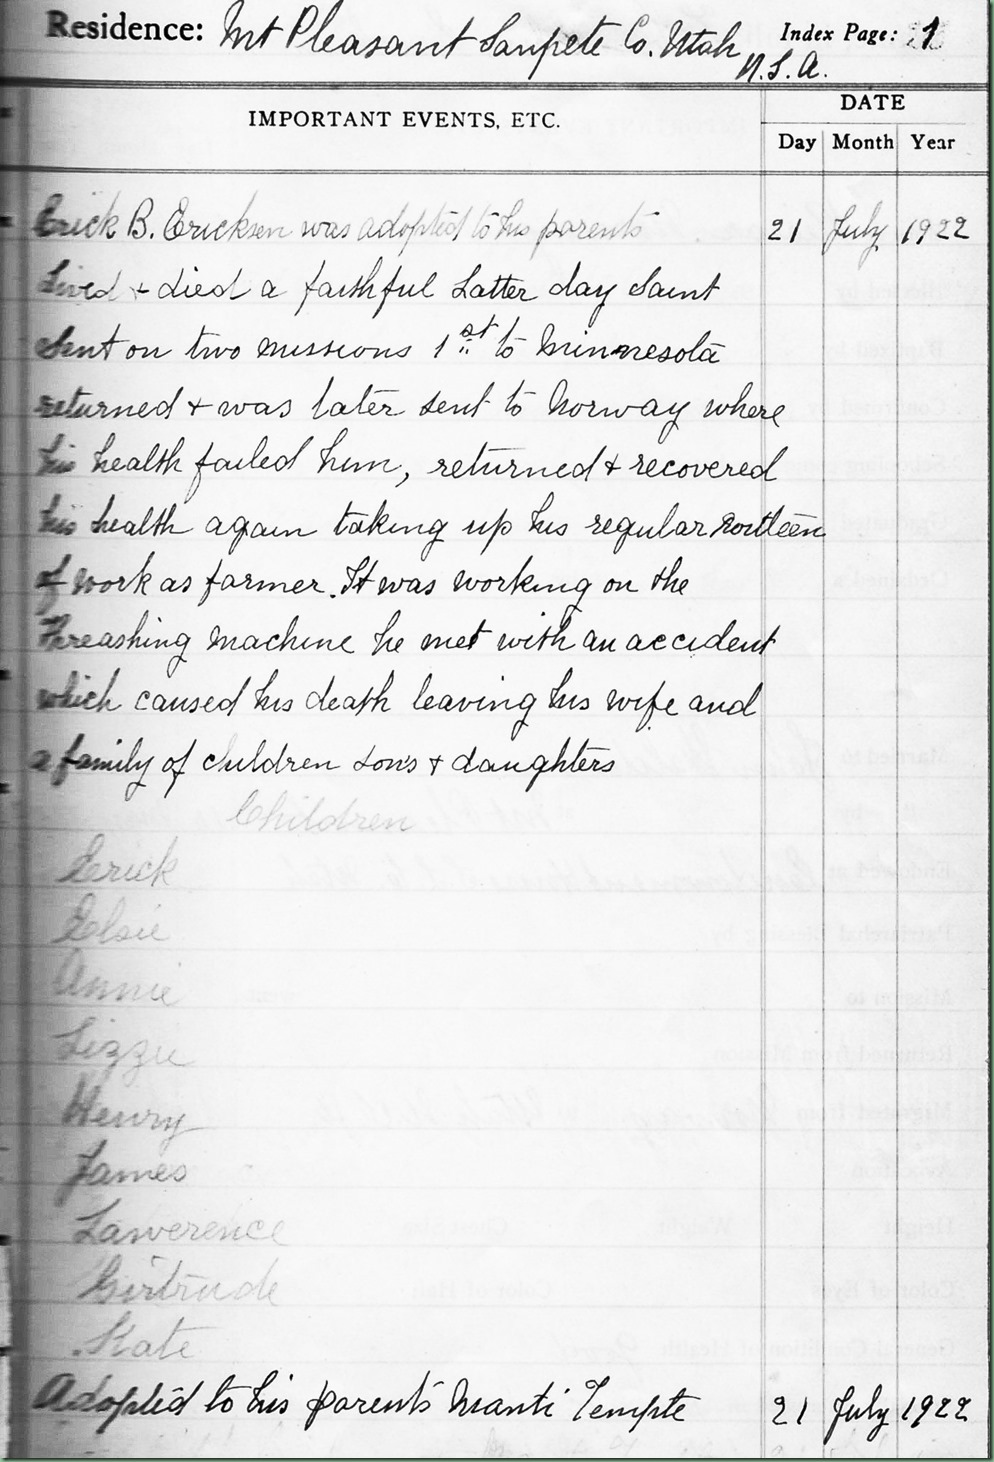 Residence: Mt Pleasant Sanpete Co. Utah Index Page: 1
U.S.A.
IMPORTANT EVENTS, ETC. DATE
Day Month Year
Erick B. Ericksen was adopted to his parents 21 July 1922
Lived + died a faithful Latter day Saint
Sent on two missions 1st to Minnesota
returned + was later sent to Norway where
his health failed him, returned + recovered
his health again taking up his regular Routteen
of work as farmer. It was working on the
threashing machine he met with an accident
which caused his death leaving his wife and
a family of children sons + daughters
Children
Erick
Elsie
Annie
Lizzie
Henry
James
Lawerence
Girtrude
Kate
Adopted to his parents Manti Temple 21 July 1922